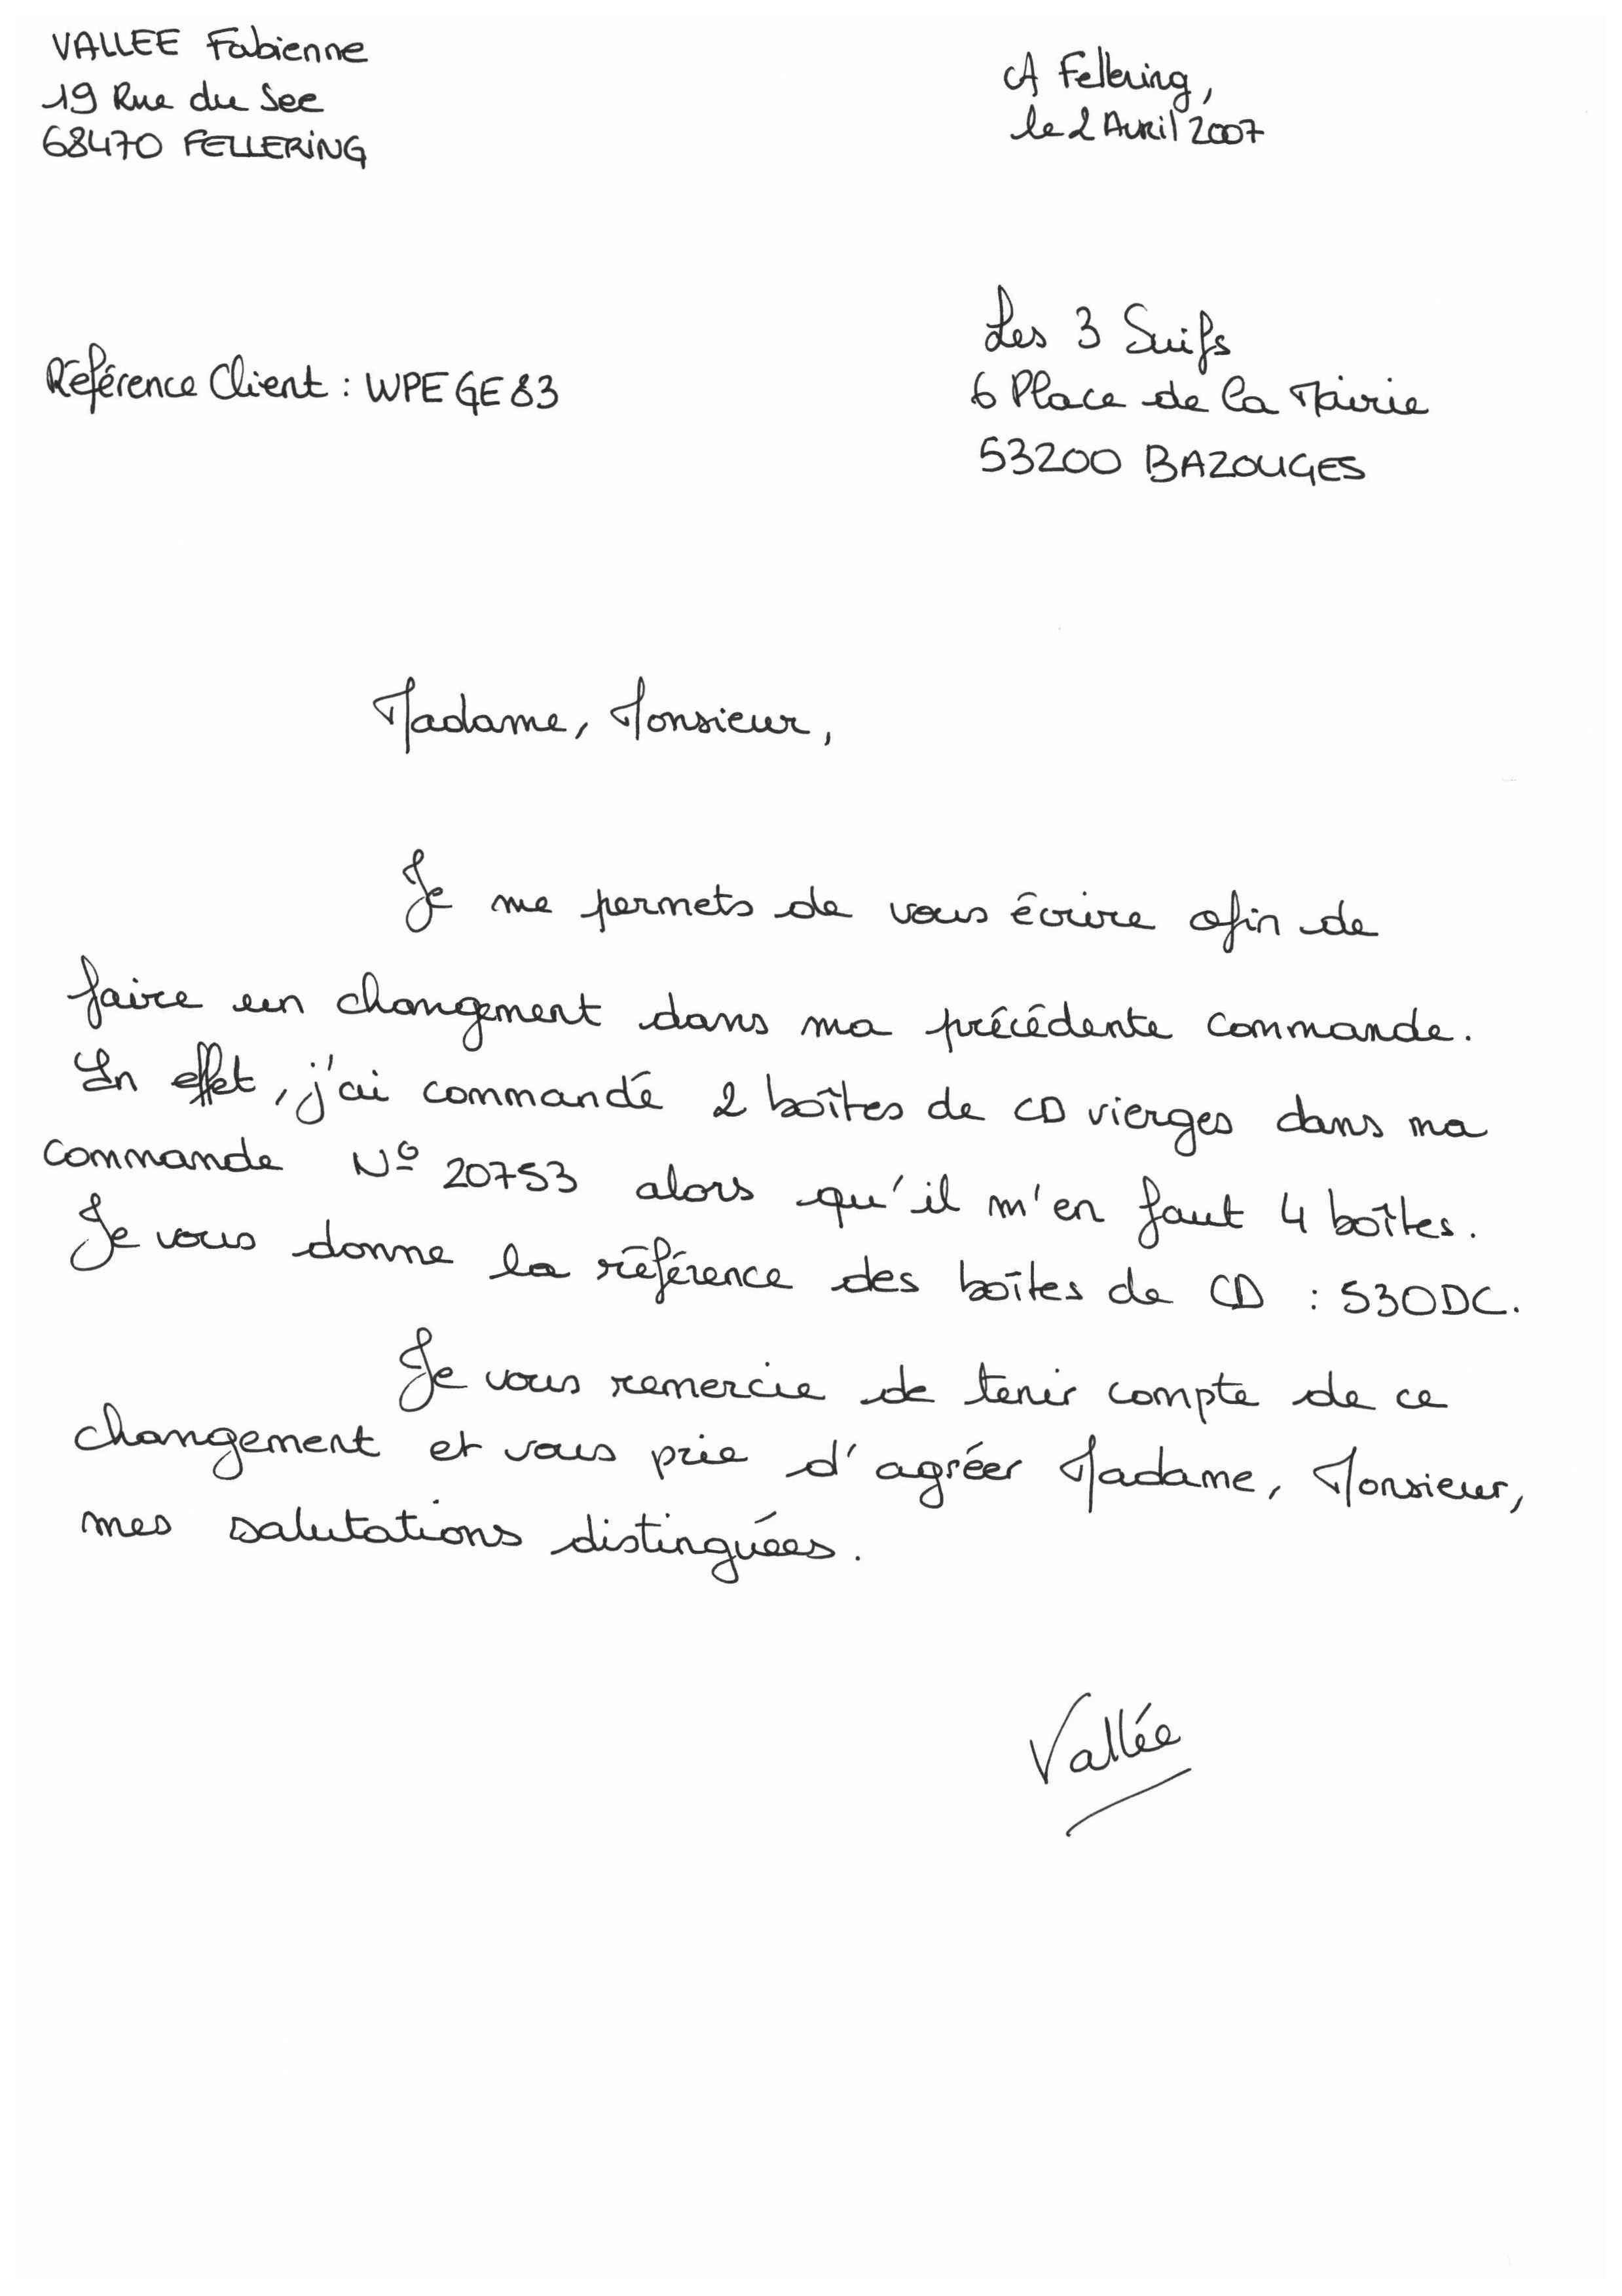 VALLEE Fabienne
19 Rue du See
68470 FELLERING
A Fellering,
le 2 Avril 2007
Les 3 Suifs
Référence Client : WPEGE83
6 Place de la Mairie
53200 BAZOUGES
Madame, Monsieur,
Je me permets de vous écrire afin de
faire un changement dans ma précédente commande.
En effet, j'ai commandé 2 boîtes de CD vierges dans ma
commande N° 20753 alors qu'il m'en faut 4 boîtes.
Je vous donne la référence des boîtes de CD : 530DC.
Je vous remercie de tenir compte de ce
changement et vous prie d'agréer Madame, Monsieur,
mes salutations distinguées.
Vallée